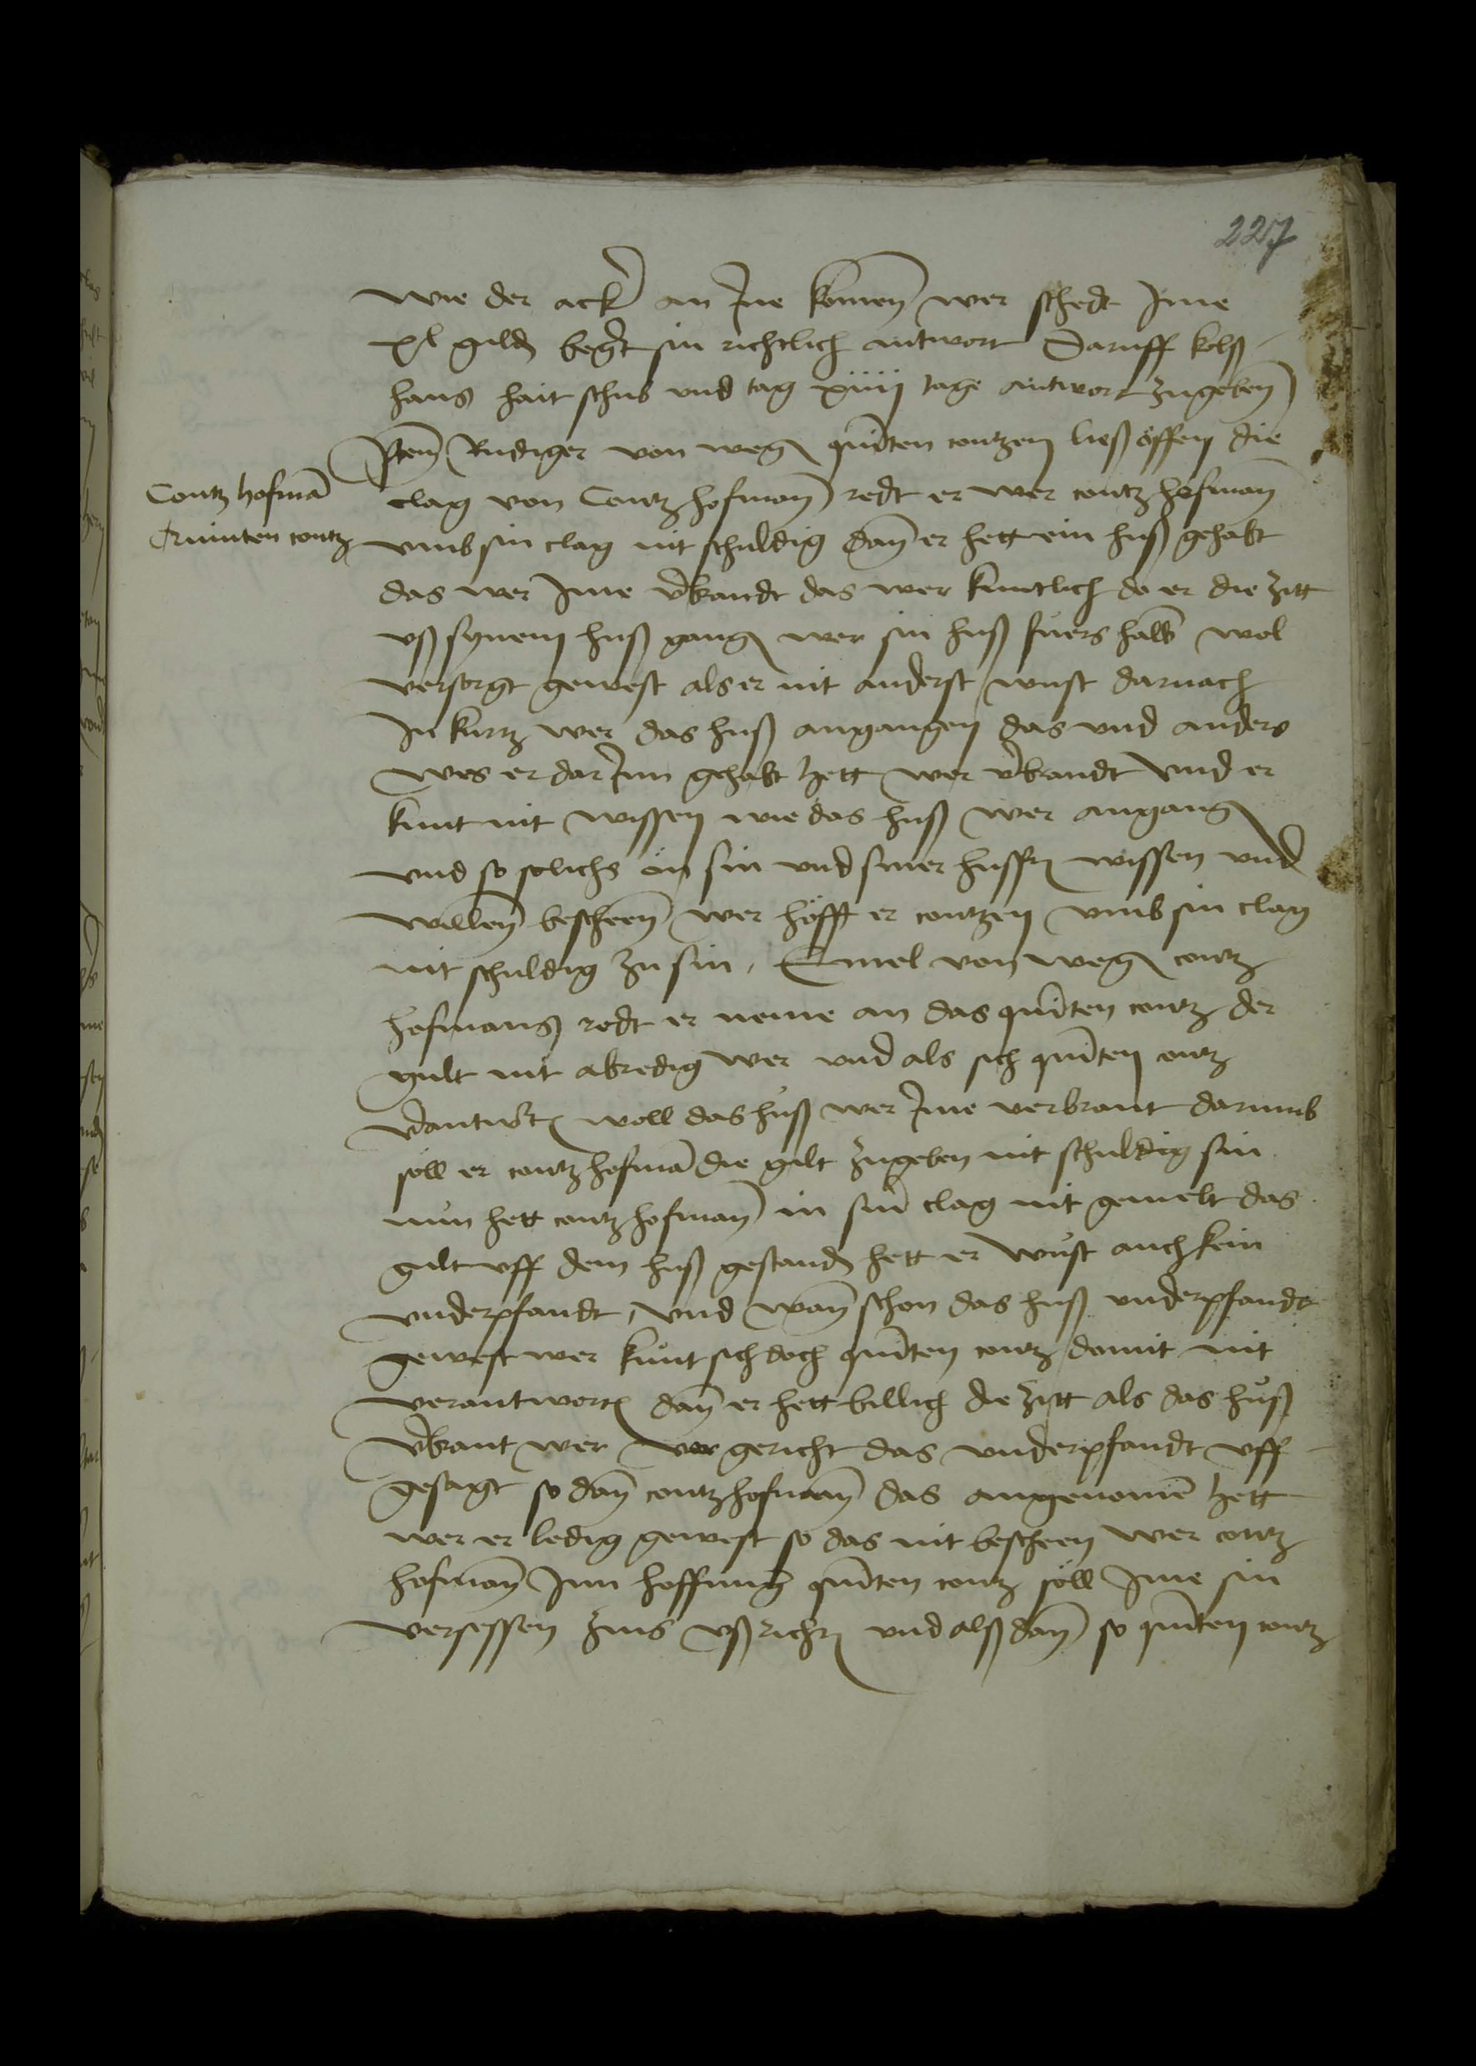 227
wie der acker an Jne komen wer schedt Jme
xl gilden begert sin richtlich antwort Daruff kolß
hans hait schub vnd tag xiiii tage antwort zugeben
Jtem Rudiger von wegen quinten contzen ließ öffen die
Contz hofman
Quinten contz
clag von Contz hofman redt er wer contz hofman
vmb sin clag nit schuldig dan er hett ein huß gehabt
das wer Jme verbrandt das wer kuntlich do er die zitt
vß synem huß gangen wer sin huß fuers halb wol
versorgt gewest als er nit anderst wust darnach
In kurtz wer das huß angangen das vnd anders
wes er darJnn gehabt hett wer verbrandt vnd er
kunt nit wissen wie das huß wer angangen
vnd so solichs ön sin vnd siner hussfr wissen vnd
willen bescheen wer hofft er contzen vmb sin clag
nit schuldig zu sin, Emel von wegen contz
hofmans redt er neme an das quinten contz der
gult nit abredig wer vnd als sich quinten contz
verantwort woll das huß wer Jme verbrant darumb
söll er contz hofman die gilt zugeben nit schuldig sin
nun hett contz hofman in siner clag nit gemelt das
gilt vff dem huß gestanden hett er wust auch kein
vnderpfandt, vnd wan schon das huß vnderpfandt
gewest wer kunt sich doch quinten contz domit nit
verantworten dan er hett billich die zitt als das huß
verbrant wer vor gericht das vnderpfandt vff
gesagt so dan contz hofman das angenomen hett
wer er ledig gewest so das nit bescheen wer contz
hofman Jnn hoffnung quinten contz söll Jme sin
versessen zins vßrichten vnd alß dan so quinten contz